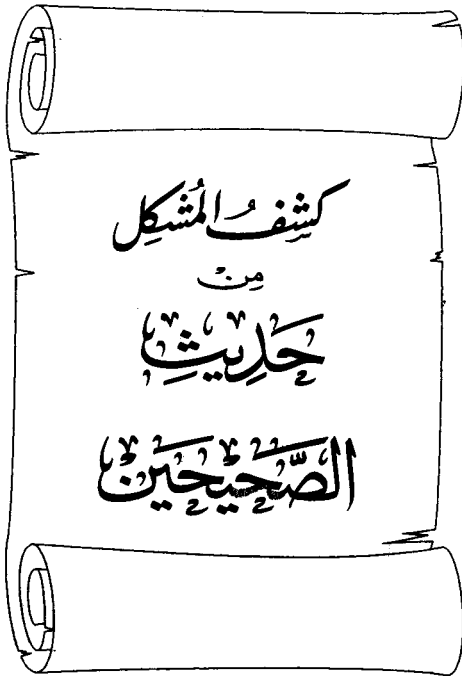 كَشْفُ المُشْكِل
مِنْ
حَدِيثِ
الصَّحِيحَيْن